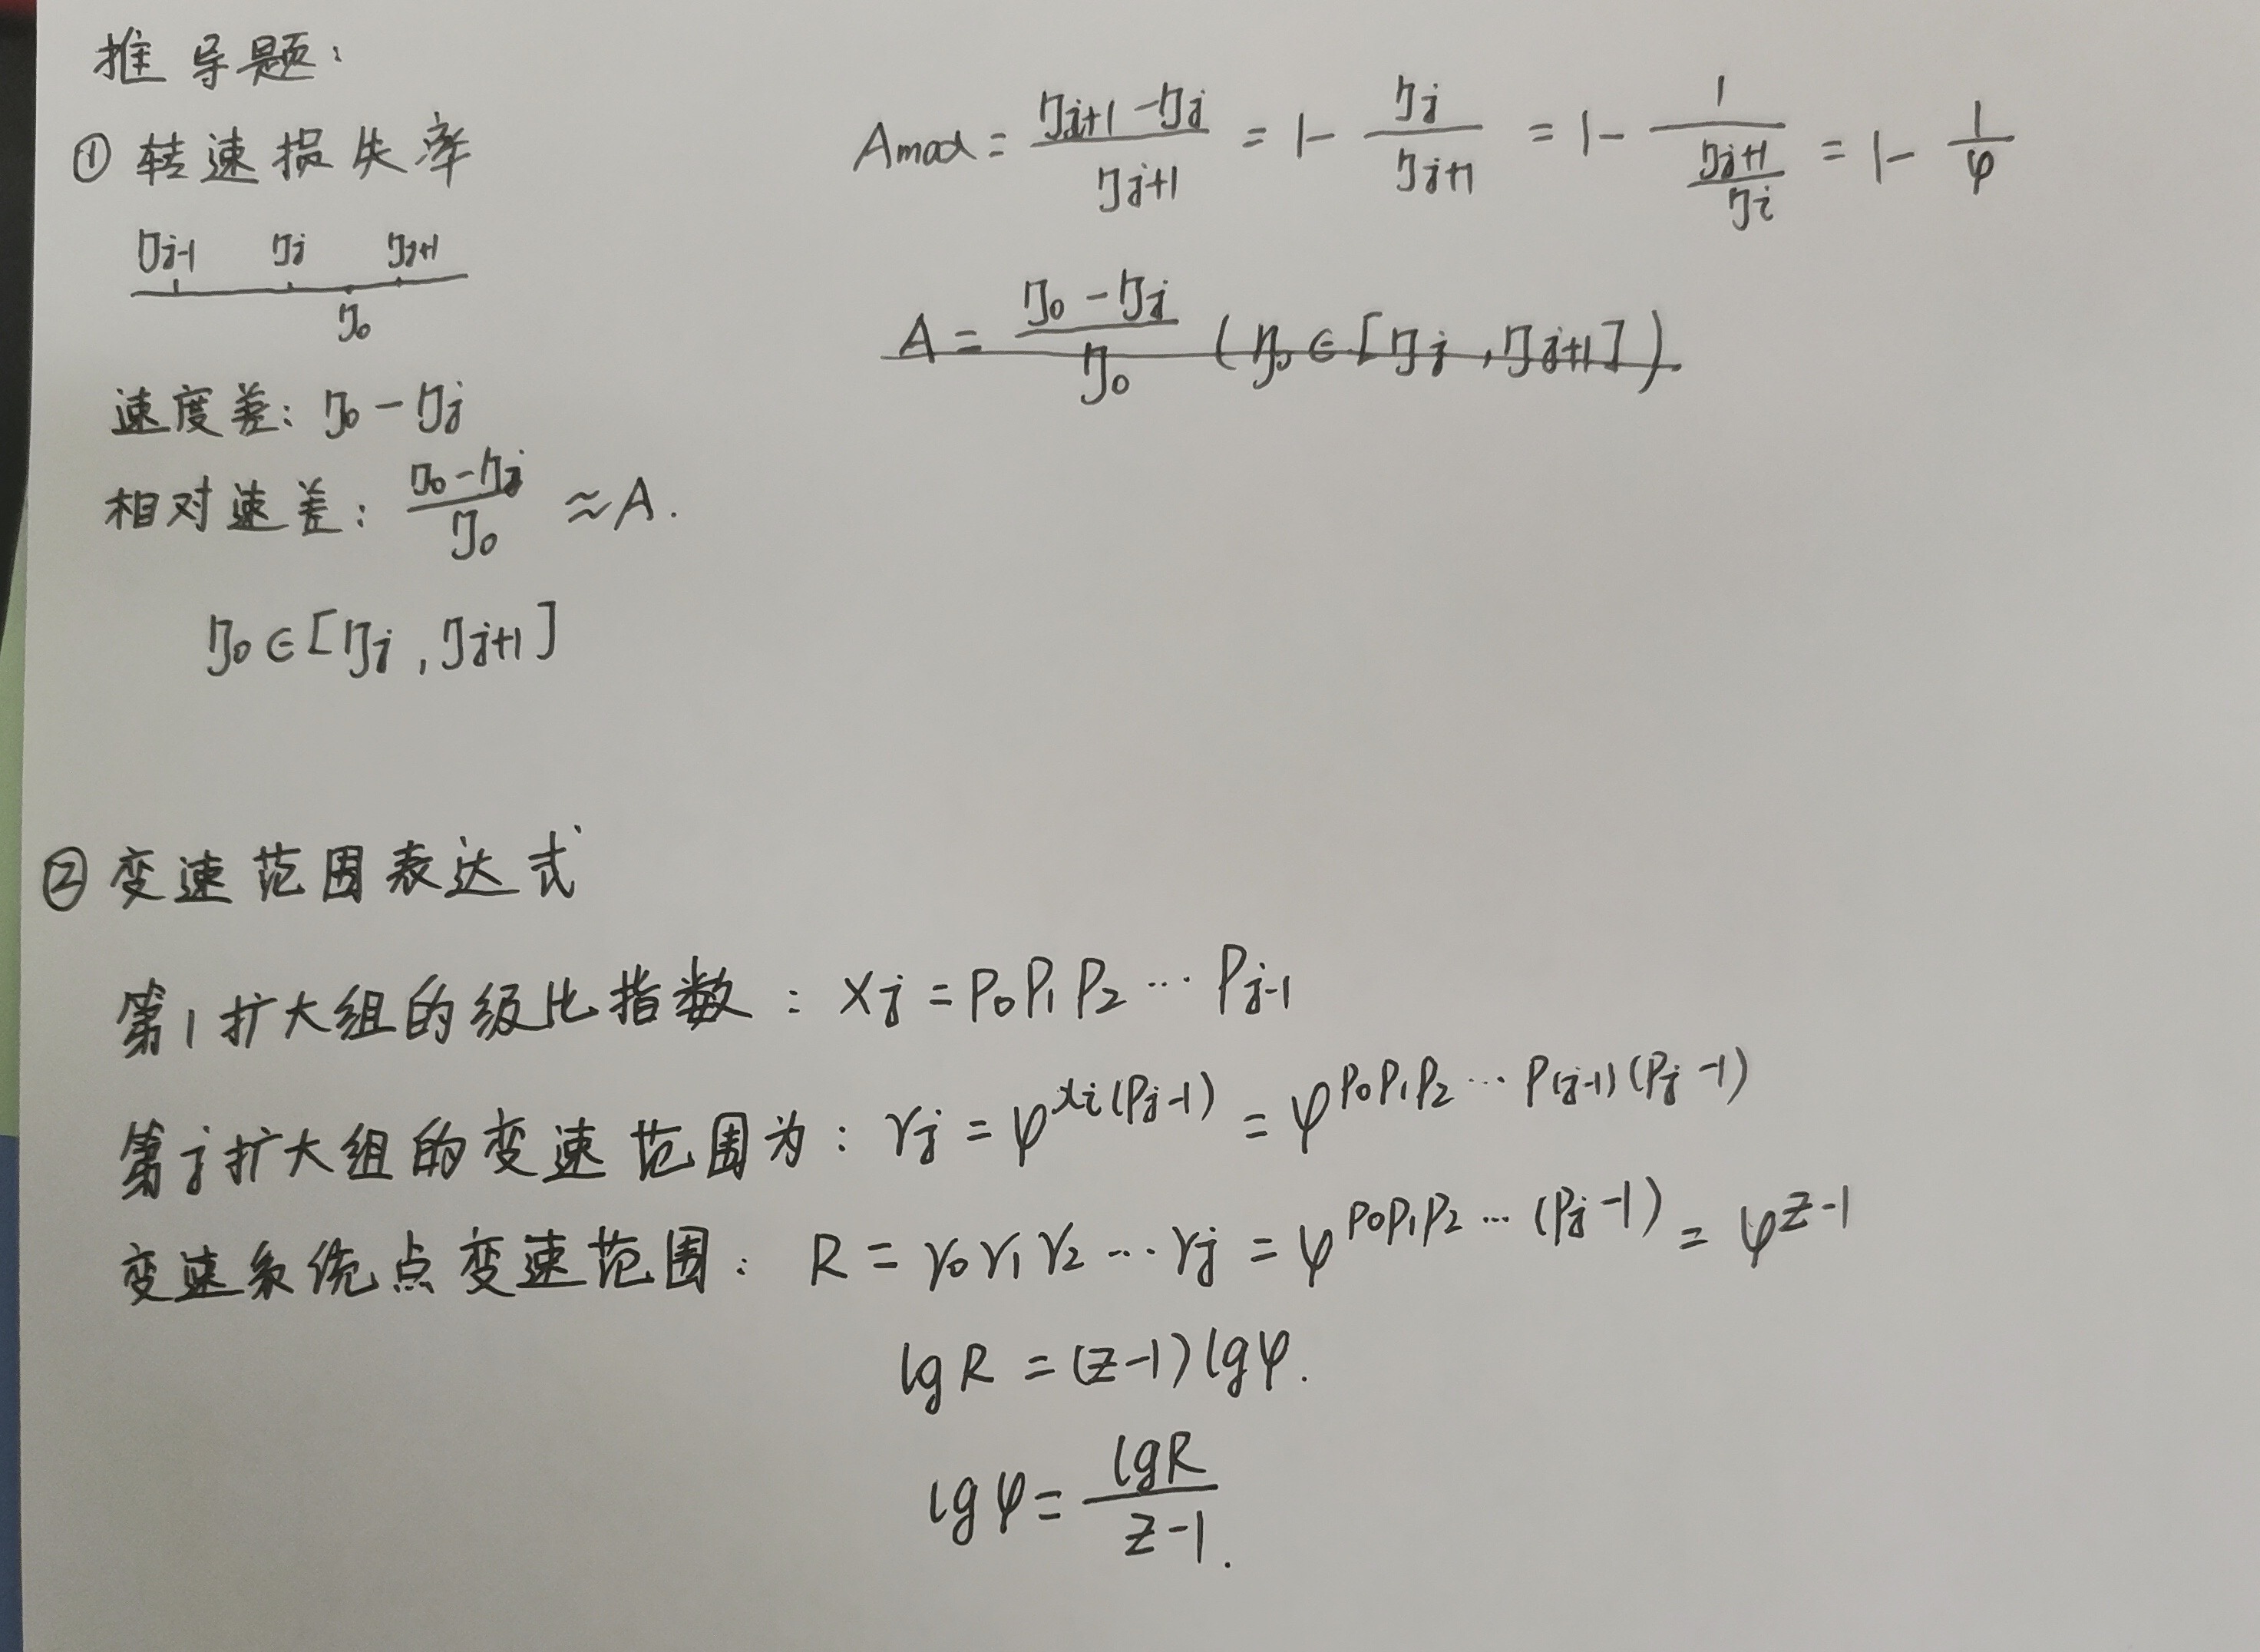 推导题:
① 转速损失率
ηj-1 ηj ηj+1
η0
速度差: η0 - ηj
相对速差: (η0 - ηj)/η0 ≈ A.
η0 ∈ [ηj , ηj+1]
Amax = (ηj+1 - ηj)/ηj+1 = 1 - ηj/ηj+1 = 1 - 1/(ηj+1/ηi) = 1 - 1/φ
A = (η0 - ηj)/η0 (η0 ∈ [ηj , ηj+1])
② 变速范围表达式
第1扩大组的级比指数 : xj = P0P1P2 … Pj-1
第j扩大组的变速范围为: rj = φ^xi(Pj-1) = φ^P0P1P2 … P(j-1)(Pj-1)
变速系统点变速范围: R = r0r1r2 … rj = φ^P0P1P2 … (Pj-1) = φ^z-1
lgR = (z-1)lgφ.
lgφ = lgR/(z-1).